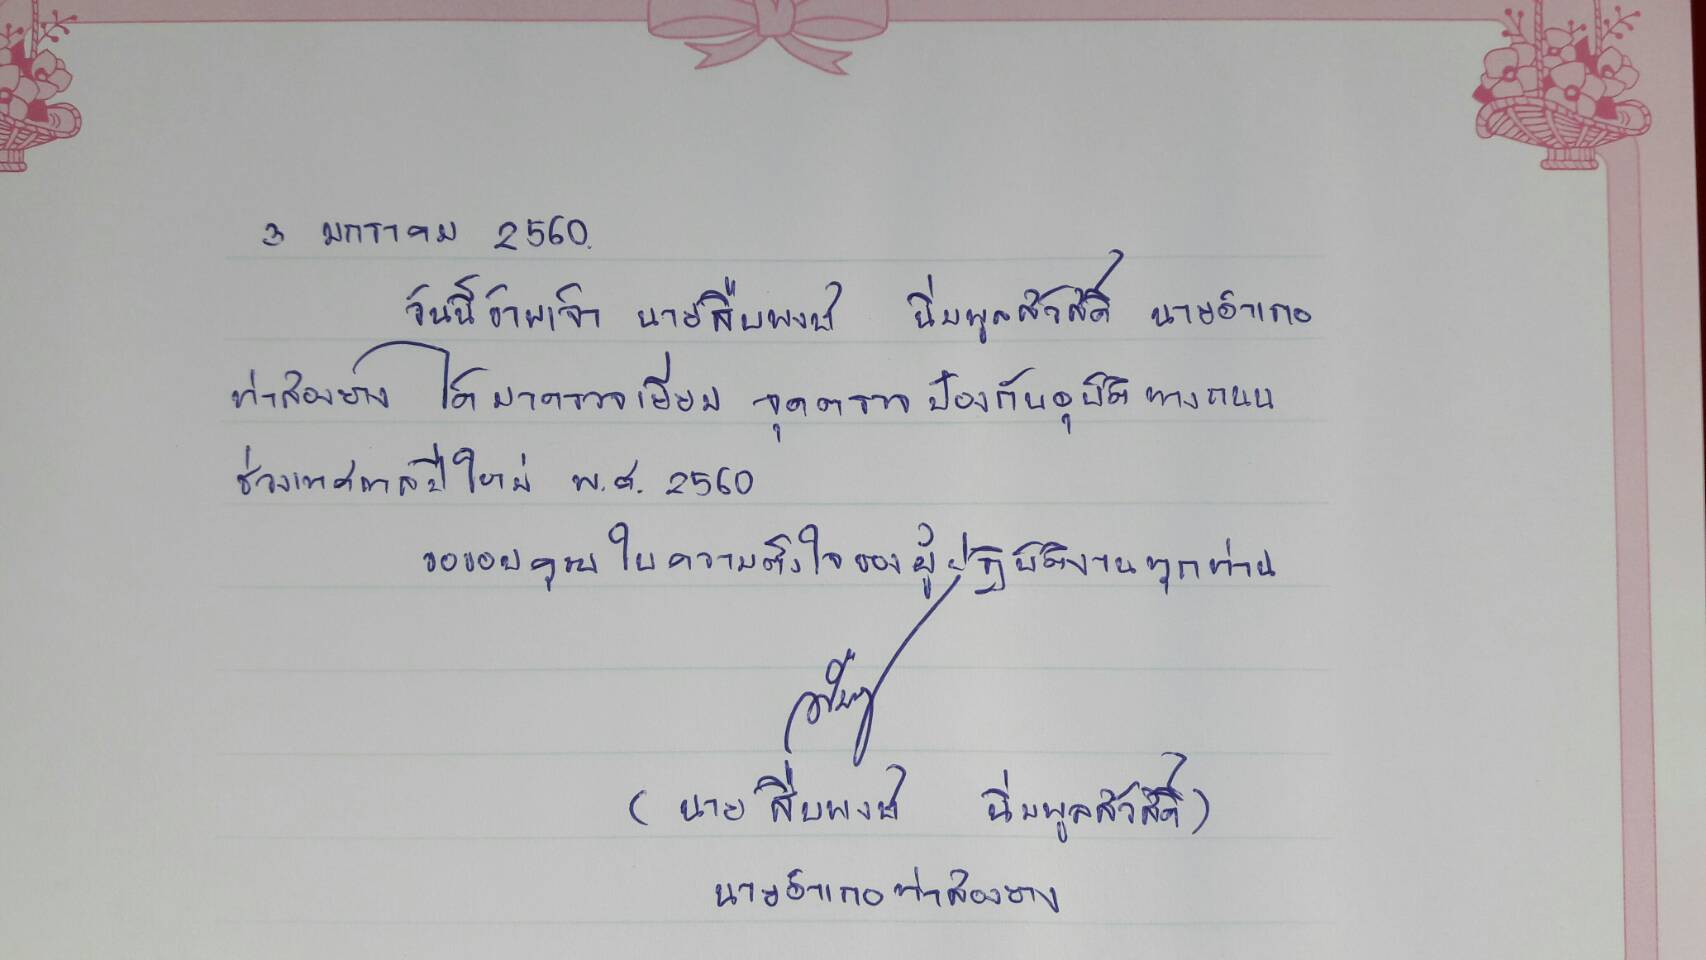 3 มกราคม 2560.
วันนี้ข้าพเจ้า นายสืบพงษ์ นิ่มพูลสวัสดิ์ นายอำเภอ
ท่าสองยาง ได้มาตรวจเยี่ยม จุดตรวจป้องกันอุบัติทางถนน
ช่วงเทศกาลปีใหม่ พ.ศ. 2560
ขอขอบคุณในความตั้งใจของผู้ปฏิบัติงานทุกท่าน
(นายสืบพงษ์ นิ่มพูลสวัสดิ์)
นายอำเภอท่าสองยาง